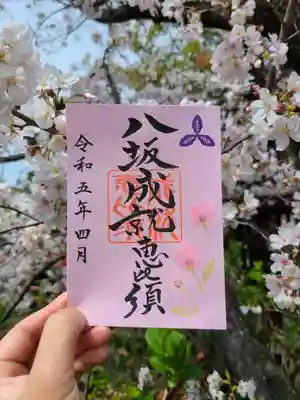 八坂成就恵比須
令和五年四月